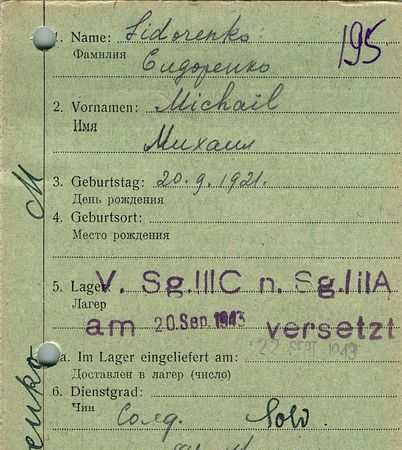 1. Name: Sidorenko 195
Фамилия
Сидоренко
2. Vornamen: Michail
Имя
Михаил
3. Geburtstag: 20. 9. 1921.
День рождения
4. Geburtsort:
Место рождения
5. Lager
Лагер
V. Sg.IIIC n. Sg.IIIA
am 20 Sep. 1943 versetzt
22. SEPT. 1943
a. Im Lager eingeliefert am:
Доставлен в лагер (число)
6. Dienstgrad:
Чин
Солд. Sold.
М
енко